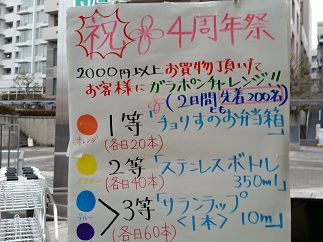 祝 4周年祭
2000円以上お買物頂いた
お客様にガラポンチャレンジ!!
(2日間とも先着200名)
オレンジ 1等「チョリすのお弁当箱」
(各日20本)
イエロー 2等「ステンレスボトル
(各日40本) 350ml」
ブルー >3等「サランラップ
(各日60本) <1本> 10m」